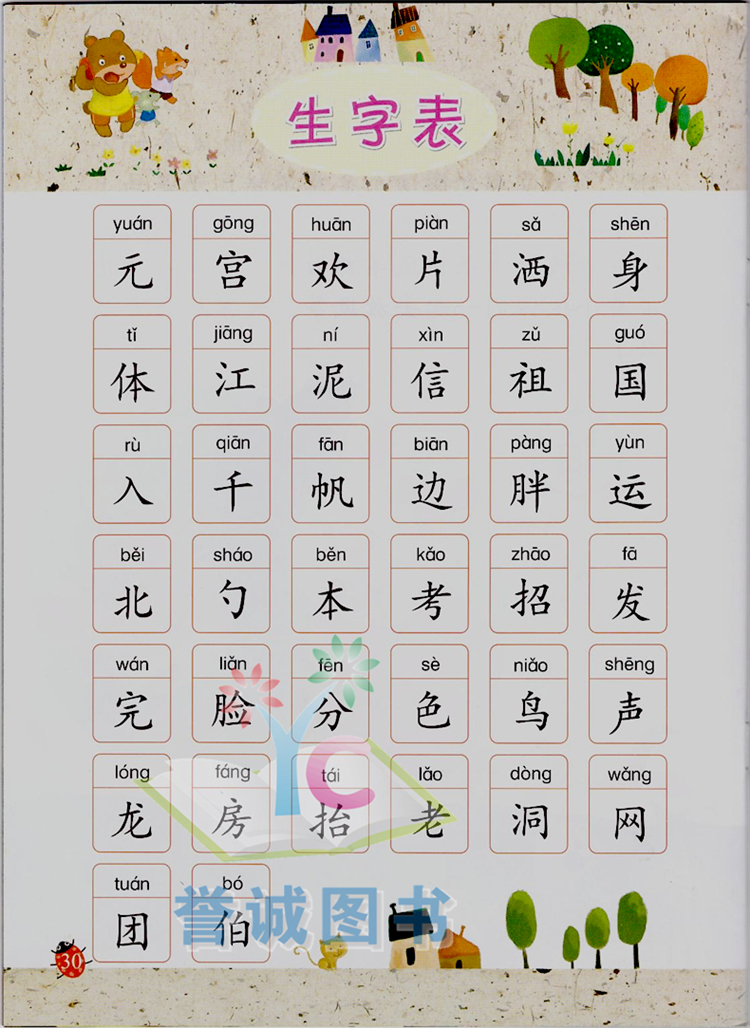 生字表
yuán gōng huān piàn sǎ shēn
元 宫 欢 片 洒 身
tǐ jiāng ní xìn zǔ guó
体 江 泥 信 祖 国
rù qiān fān biān pàng yùn
入 千 帆 边 胖 运
běi sháo běn kǎo zhāo fā
北 勺 本 考 招 发
wán liǎn fēn sè niǎo shēng
完 脸 分 色 鸟 声
lóng fáng tái lǎo dòng wǎng
龙 房 抬 老 洞 网
tuán bó
团 伯
YC
誉诚图书
30